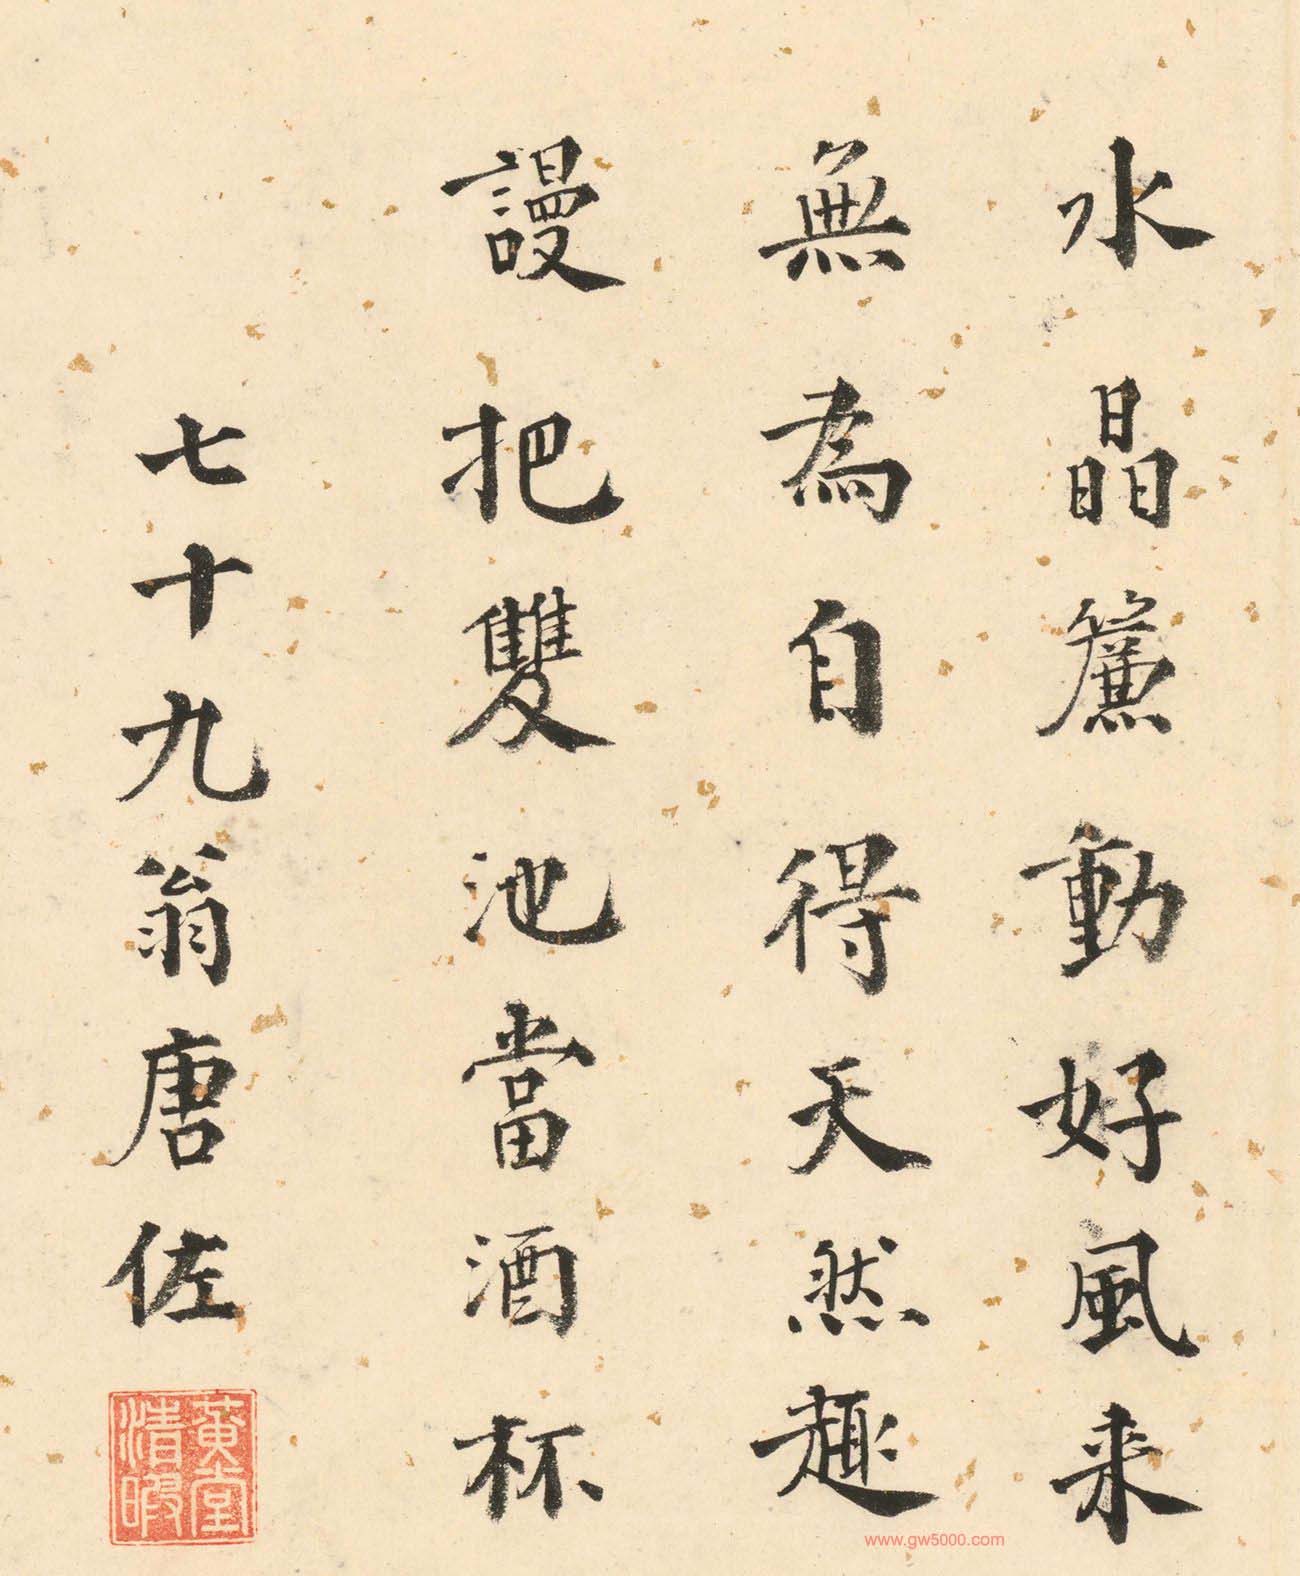 水晶簾動好風来
無為自得天然趣
謾把雙池當酒杯
七十九翁唐佐
黄堂清暇
www.gw5000.com